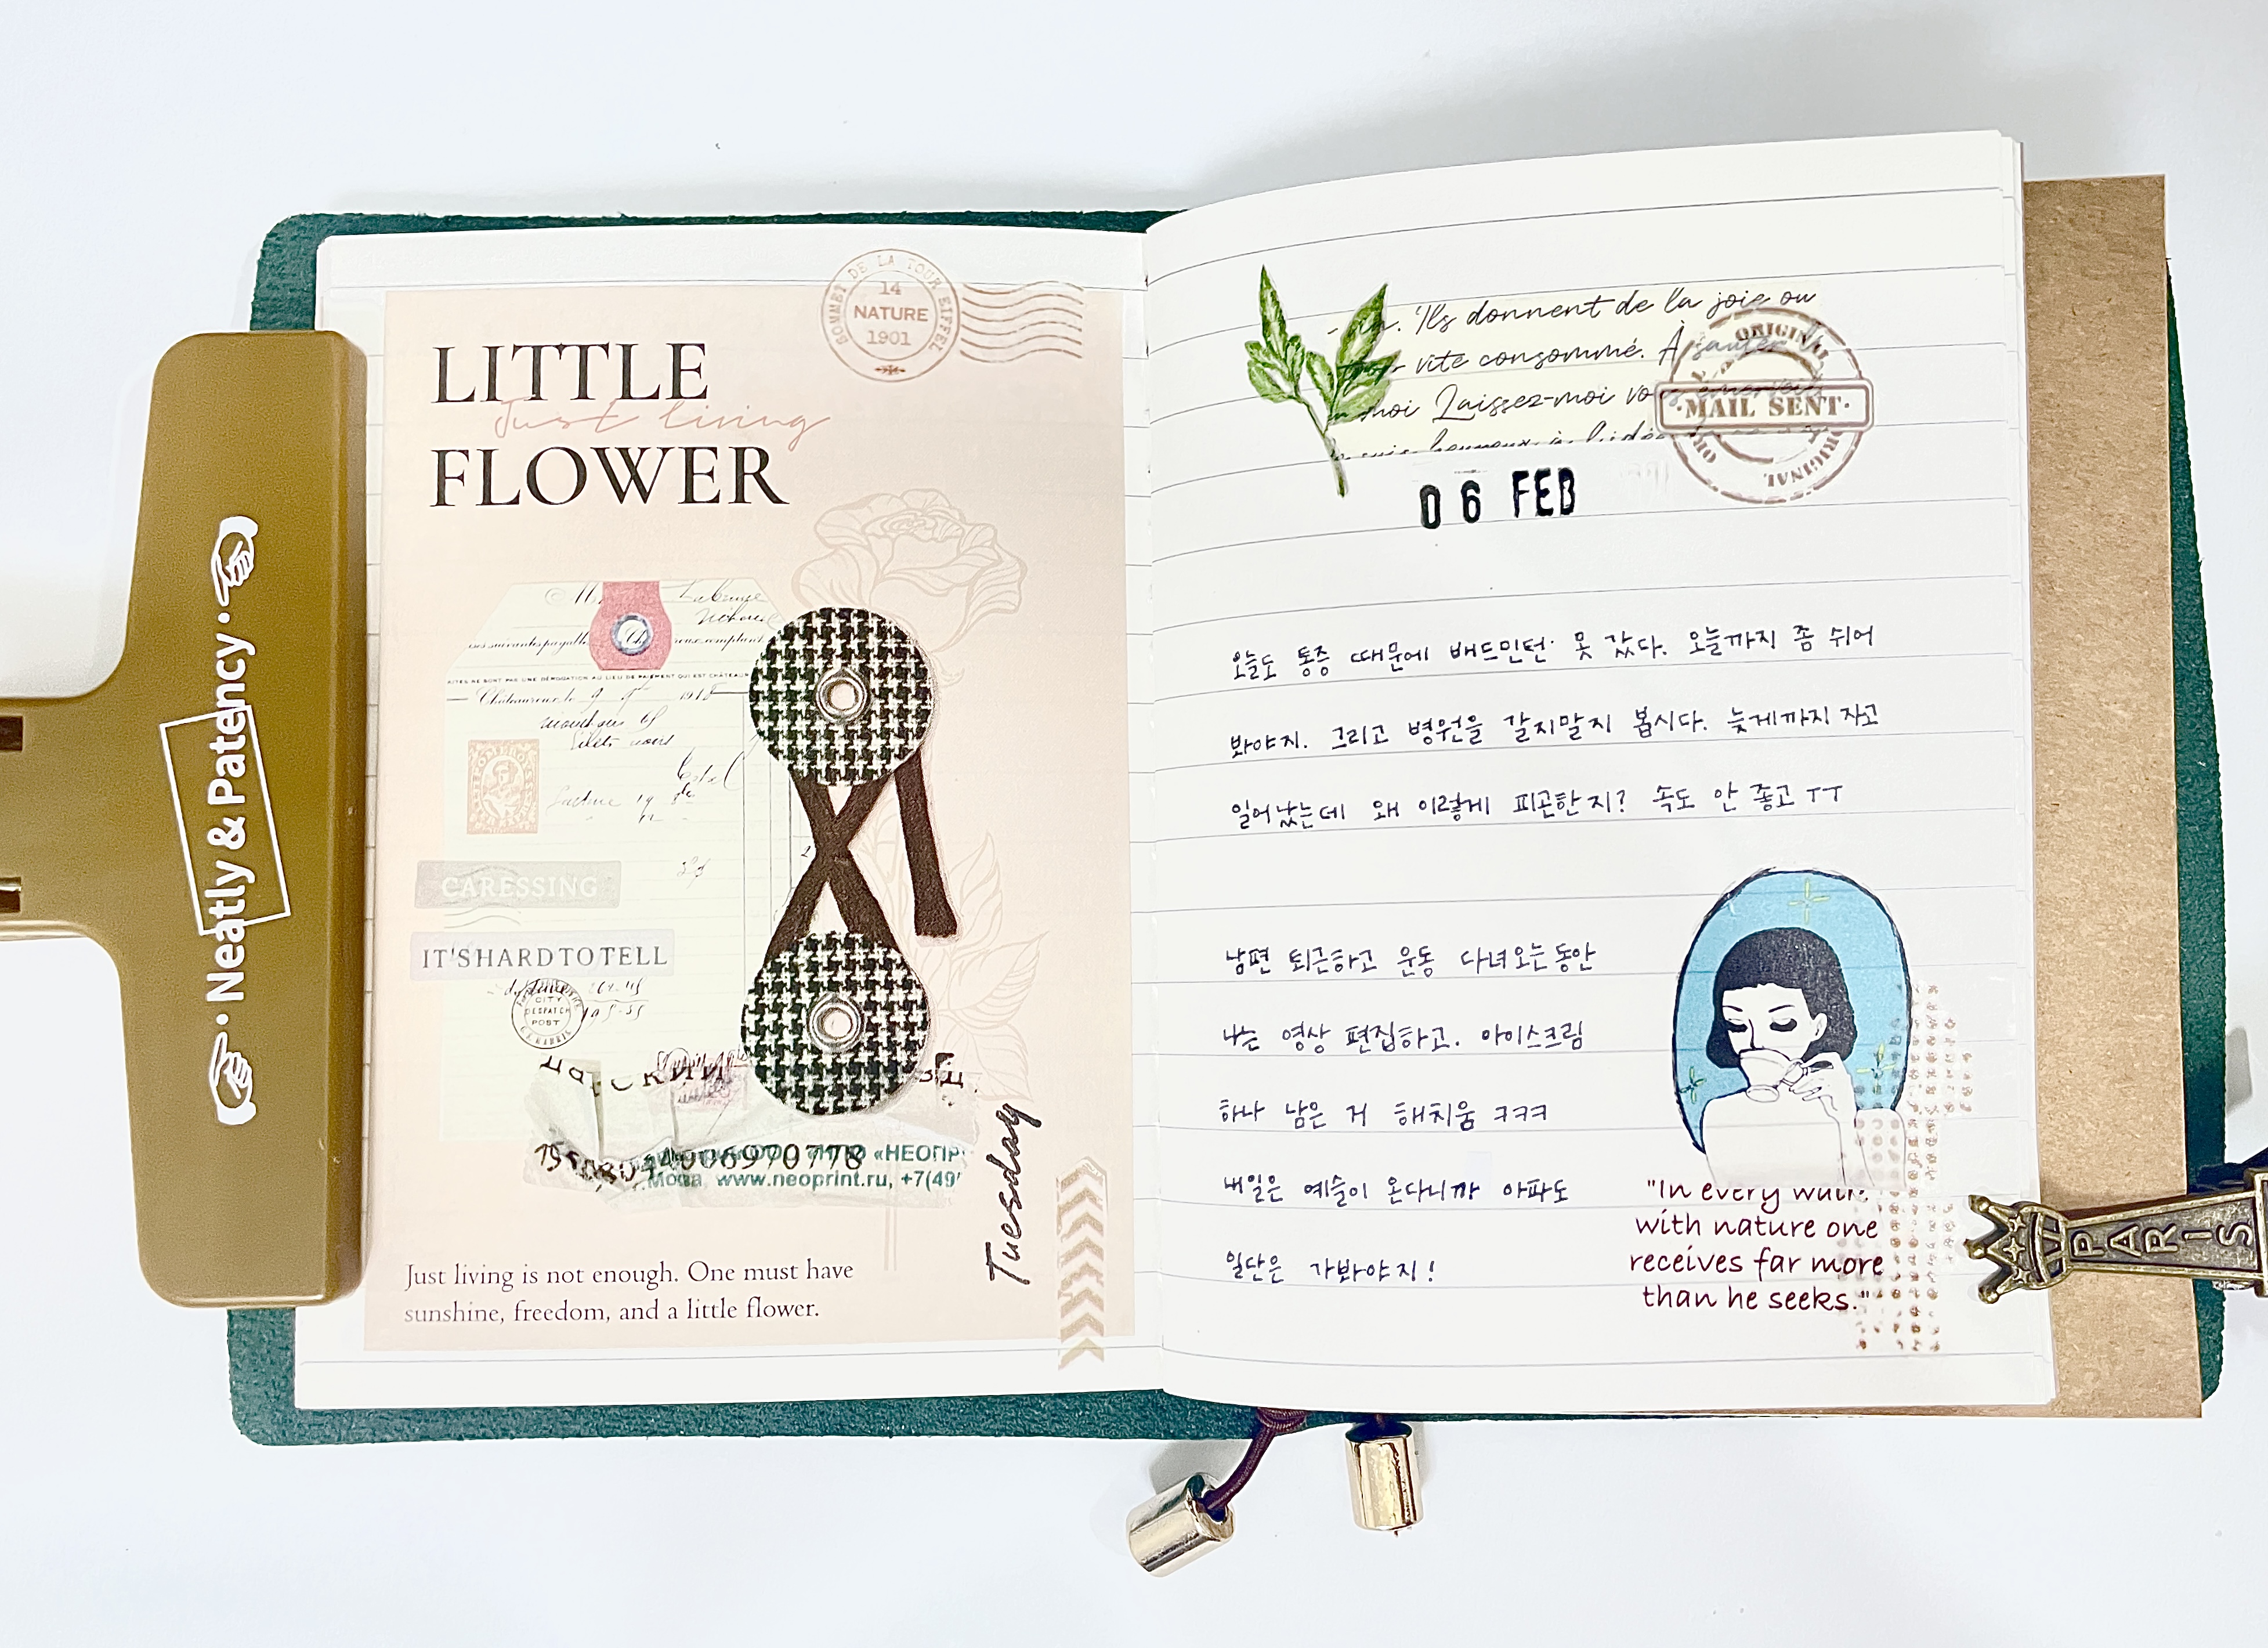 Neatly & Patency
SOMMET DE LA TOUR EIFFEL
14
NATURE
1901
LITTLE
Just living
FLOWER
CARESSING
IT'S HARD TO TELL
CITY
DESPATCH
POST
«НЕОПР
www.neoprint.ru, +7(49
Tuesday
Just living is not enough. One must have
sunshine, freedom, and a little flower.
Ils donnent de la joie ou
vite consommé. À sauter
moi Laissez-moi
ORIGINAL
·MAIL SENT·
ORIGINAL
06 FEB
오늘도 통증 때문에 배드민턴 못 갔다. 오늘까지 좀 쉬어
봐야지. 그리고 병원을 갈지말지 봅시다. 늦게까지 자고
일어났는데 왜 이렇게 피곤한지? 속도 안 좋고 ㅜㅜ
남편 퇴근하고 운동 다녀오는동안
나는 영상 편집하고. 아이스크림
하나 남은 거 해치움 ㅋㅋㅋ
내일은 예슬이 온다니까 아파도
일단은 가봐야지!
"In every walk
with nature one
receives far more
than he seeks."
PARIS